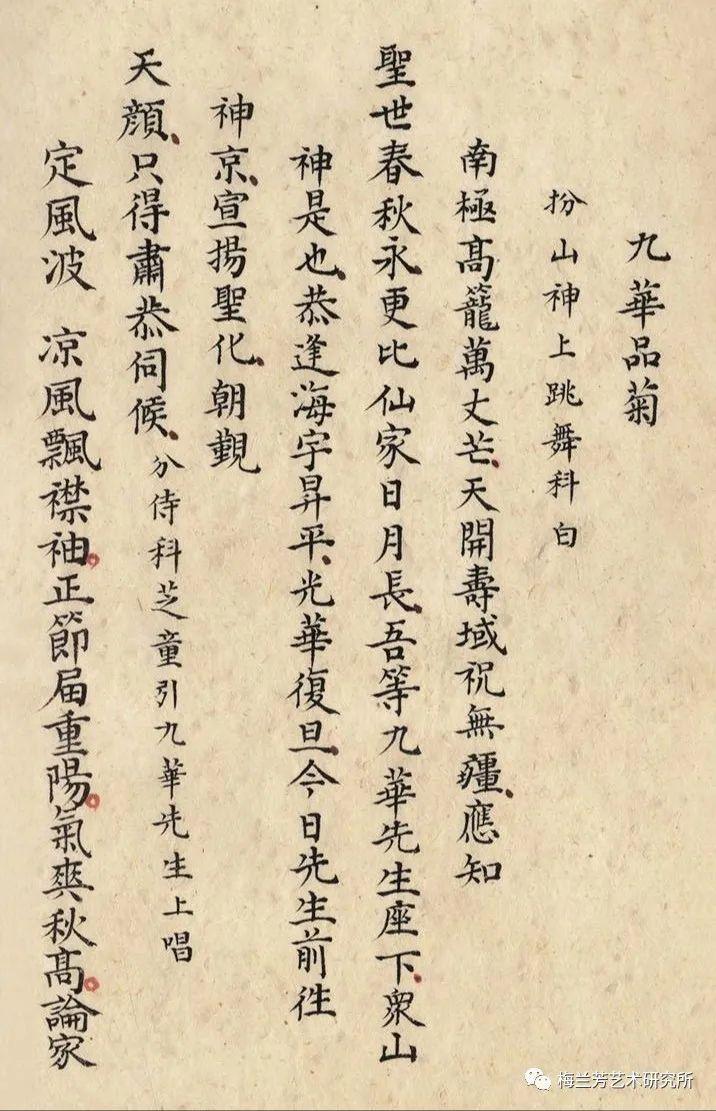 九華品菊
扮山神上跳舞科白
南極高籠萬丈芒、天開壽域祝無疆、應知
聖世春秋永更比仙家日月長、吾等九華先生座下、衆山
神是也、恭逢海宇昇平、光華復旦、今日先生前徃
神京、宣揚聖化、朝覲
天顔、只得肅恭伺候、分侍科芝童引九華先生上唱
定風波 凉風飄襟袖。正節届重陽。氣爽秋髙。論家
梅兰芳艺术研究所